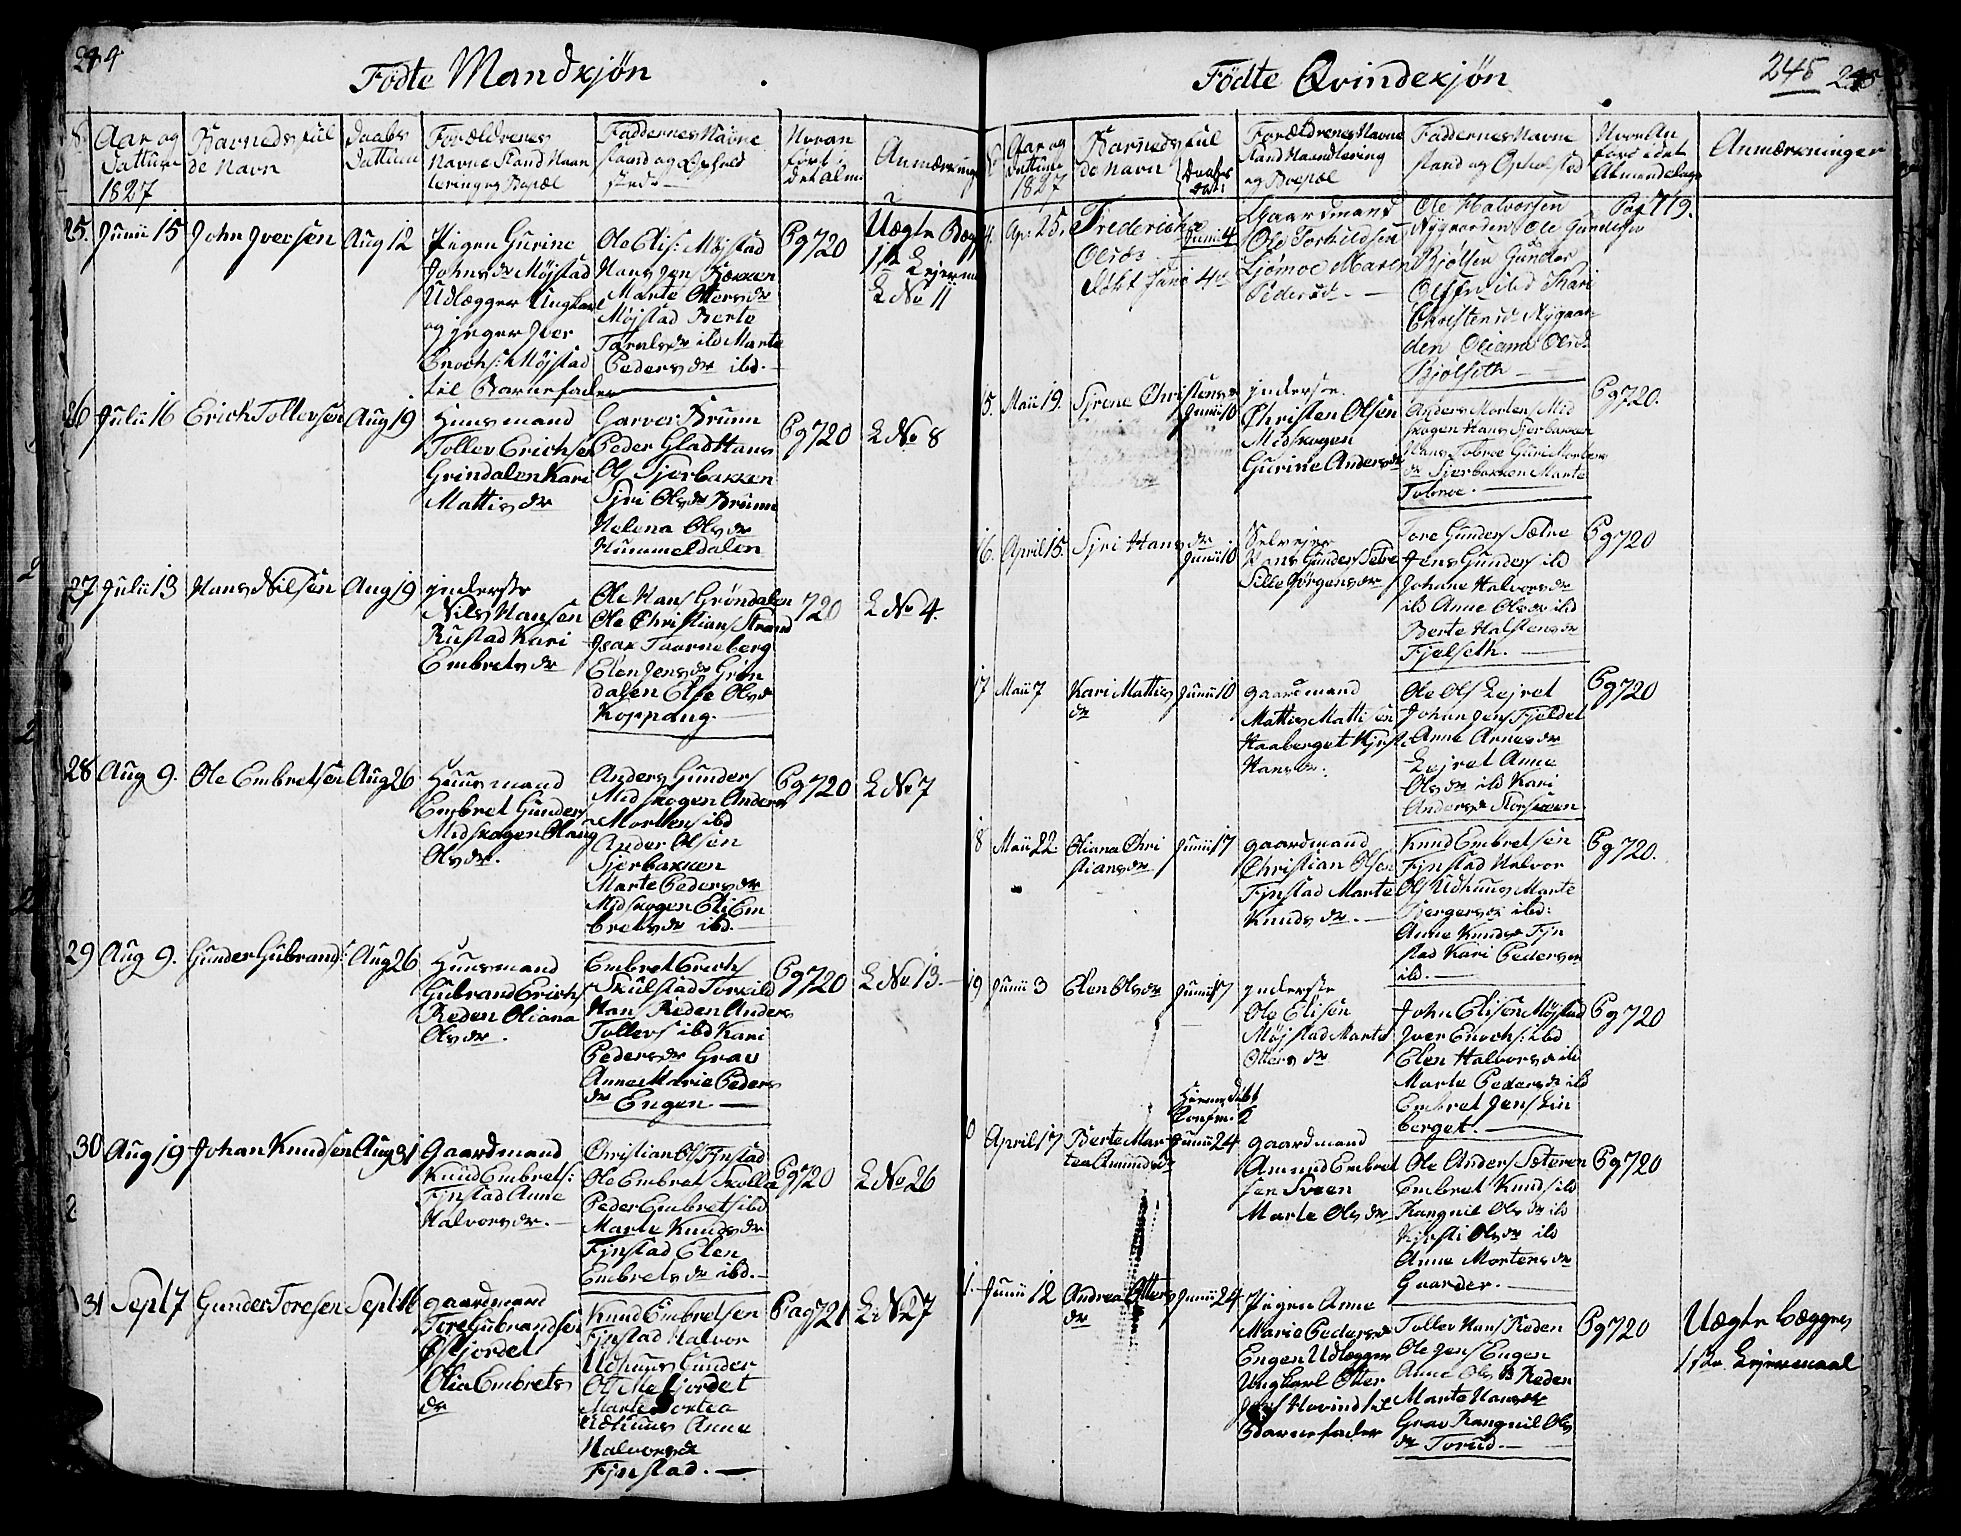 244
Födte Mandkjön
Aar og Dattum 1827
Barnedsful
de Navn
Daabs
Dattum
Forældrenes
Navne Stand Haan
tering og Bopæl
Faddernes Navne
stand og Opholds
sted
Hvran
ført i
det alm.
Anmærkning
25. Junii 15 John Iversen Aug 12
Pigen Gurine
Johnsdr Møjstad
Udlægger Ungkarl
og jeger Iver
Enochs: Møjstad
til Barnefader
Ole Elis: Møjstad
Hans Jen Bækken
Marte Ottersdr
Møjstad Berte
Tarulsdr ibd Marte
Pedersdr ibd.
Pg 720
Uægte
1ste Lejerm
L No 11
26 Julii 16 Erich Tollevsen Aug 19
Huusmand
Tollev Erichsen
Grindalen Kari
Mattisdr
Garver Brunn
Peder Glad Hans
Ols Sjerbakken
Sjri Olsdr Brunn
Helena Olsdr
Hummeldalen
Pg 720
L No 8
27 Julii 13 Hans Nilsen Aug 19
jnderste
Nils Hansen
Rustad Kari
Embretsdr
Ole Hans Grøndalen
Ole Christians Strand
Isax Taarneberg
Elen Jensdr Grøn
dalen Else Olsdr
Koppang.
720
L No 4.
28 Aug 9. Ole Embretsen Aug 26
Huusmand
Embret Gunders
Midskogen Olaug
Olsdr.
Anders Gunders
Midskogen Anders
Mortens ibd
Ander Olsen
Sjerbakken
Marte Pedersdr
Midskogen Eli Em
bretsdr ibd.
Pg 720
L No 7
29 Aug 9. Gunder Gubrands: Aug 26
Huusmand
Gubrand Erichs
Reden Oliana
Olsdr.
Embret Erichs
Skulstad Torkild
Hans Reden Anders
Tollevs ibd Kari
Pedersdr Grav
Anne Marie Peders
dr Engen
Pg 720
L No 13.
30 Aug 19 Johan Knudsen Aug 31
Gaardmand
Knud Embrets:
Fjnstad Anne
Halvorsdr.
Christian Ols Fjnstad
Ole Embret Skolla
Peder Embrets ibd
Marte Knudsdr
Fjnstad Elen
Embretsdr ibd.
Pg 720
L No 26
31 Sept 7 Gunder Toresen Sept 16
gaardmand
Tore Gubrandsen
Olia Embrets
dr
Knud Embretsen
Fjnstad Halvor
Udhuus Gunder
Marte Dortea
Udhuus Anne
Halvorsdr
Fjnstad.
Pag 721
L No 27
Födte Qvindekjön
245 245
Aar og
Dattum
1827
Barneds ful
de Navn
Daabs
Dat:
Forældrenes Navne
Stand Haandtering
og Bopæl
Faddernes Navne
stand og Opholsted
Hvor An
ført i det
Almindelige
Anmærkninger
4. Ap: 25. Frederichæ
Olsdr
Døbt Juni 4de
Junii 4
Gaardmand
Ole Torkildsen
Ljømoe Maren
Pedersdr
Ole Halvorsen
Nygaarden Ole Gundersen
Bjølsen Gunder
Olsen ibd Kari
Christensdr Nygaar
den Oliana Olsdr
Bjølseth
Pag 719.
5. Maii 19. Sjrene Christensdr
Junii 10
jnderste
Christen Olsen
Midskogen
Gurine Andersdr
Anders Mortens Mid
skogen Hans Sjerbakken
Hans Tobroe Guri Mortens
dr Sjerbakken Marte
Tobroe.
Pg 720.
16. April 15. Sjri Hansdr
Junii 10
Selvejer
Hans Gunders Sætre
Sille Jørgensdr
Tore Gunders Sætre
Jens Gunders ibd
Johane Halvorsdr
ibd Anne Olsdr ibd
Berte Halstensdr
Fjelseth.
Pg 720
17 Maii 7 Kari Mattis
dr
Junii 10
gaardmand
Mattis Mattisen
Haaberget Kjrsti
Hansdr.
Ole Ols Lejret
Johan Jens Fjeldet
Anne Arnesdr
Lejret Anne
Olsdr ibd Kari
Andersdr Storsveen
Pg 720
8 Maii 22. Oliana Chri
stiansdr
Junii 17
gaardmand
Christian Olsen
Fjnstad Marte
Knudsdr.
Knud Embretsen
Fjnstad Halvor
Ols Udhuus Marte
Bergersdr ibd:
Anne Knudsdr Fjn
stad Kari Pedersdr
ibd.
Pg 720.
19 Junii 3 Elen Olsdr Junii 17
jnderste
Ole Elisen
Møjstad Marte
Ottersdr
John Elisen Møjstad
Iver Enochs: ibd
Elen Halvorsdr ibd
Marte Pedersdr ibd
Embret Jens Lin
berget.
Pg 720
Hiemedøbt
Confm: 2
0 April 17 Berte Mar
tea Amundsdr
Junii 24
gaardmand
Amund Embret
sen Sveen
Marte Olsdr
Ole Anders Sæteren
Embret Knuds ibd
Rangnil Olsdr ibd
Kjrsti Olsdr ibd
Anne Mortensdr
Gaarder.
Pg 720
1. Junii 12 Andrea Otters
dr
Junii 24
Pigen Anne
Marie Pedersdr
Engen Udlægger
Ungkarl Otter
Hovind til
Barnefader
Tollev Hans Reden
Ole Jens Engen
Anne Olsdr Reden
Marte Hansdr
Grav Rangnil Ols
dr Torud.
Pg 720
Uægte bægges
1ste Lejermaal